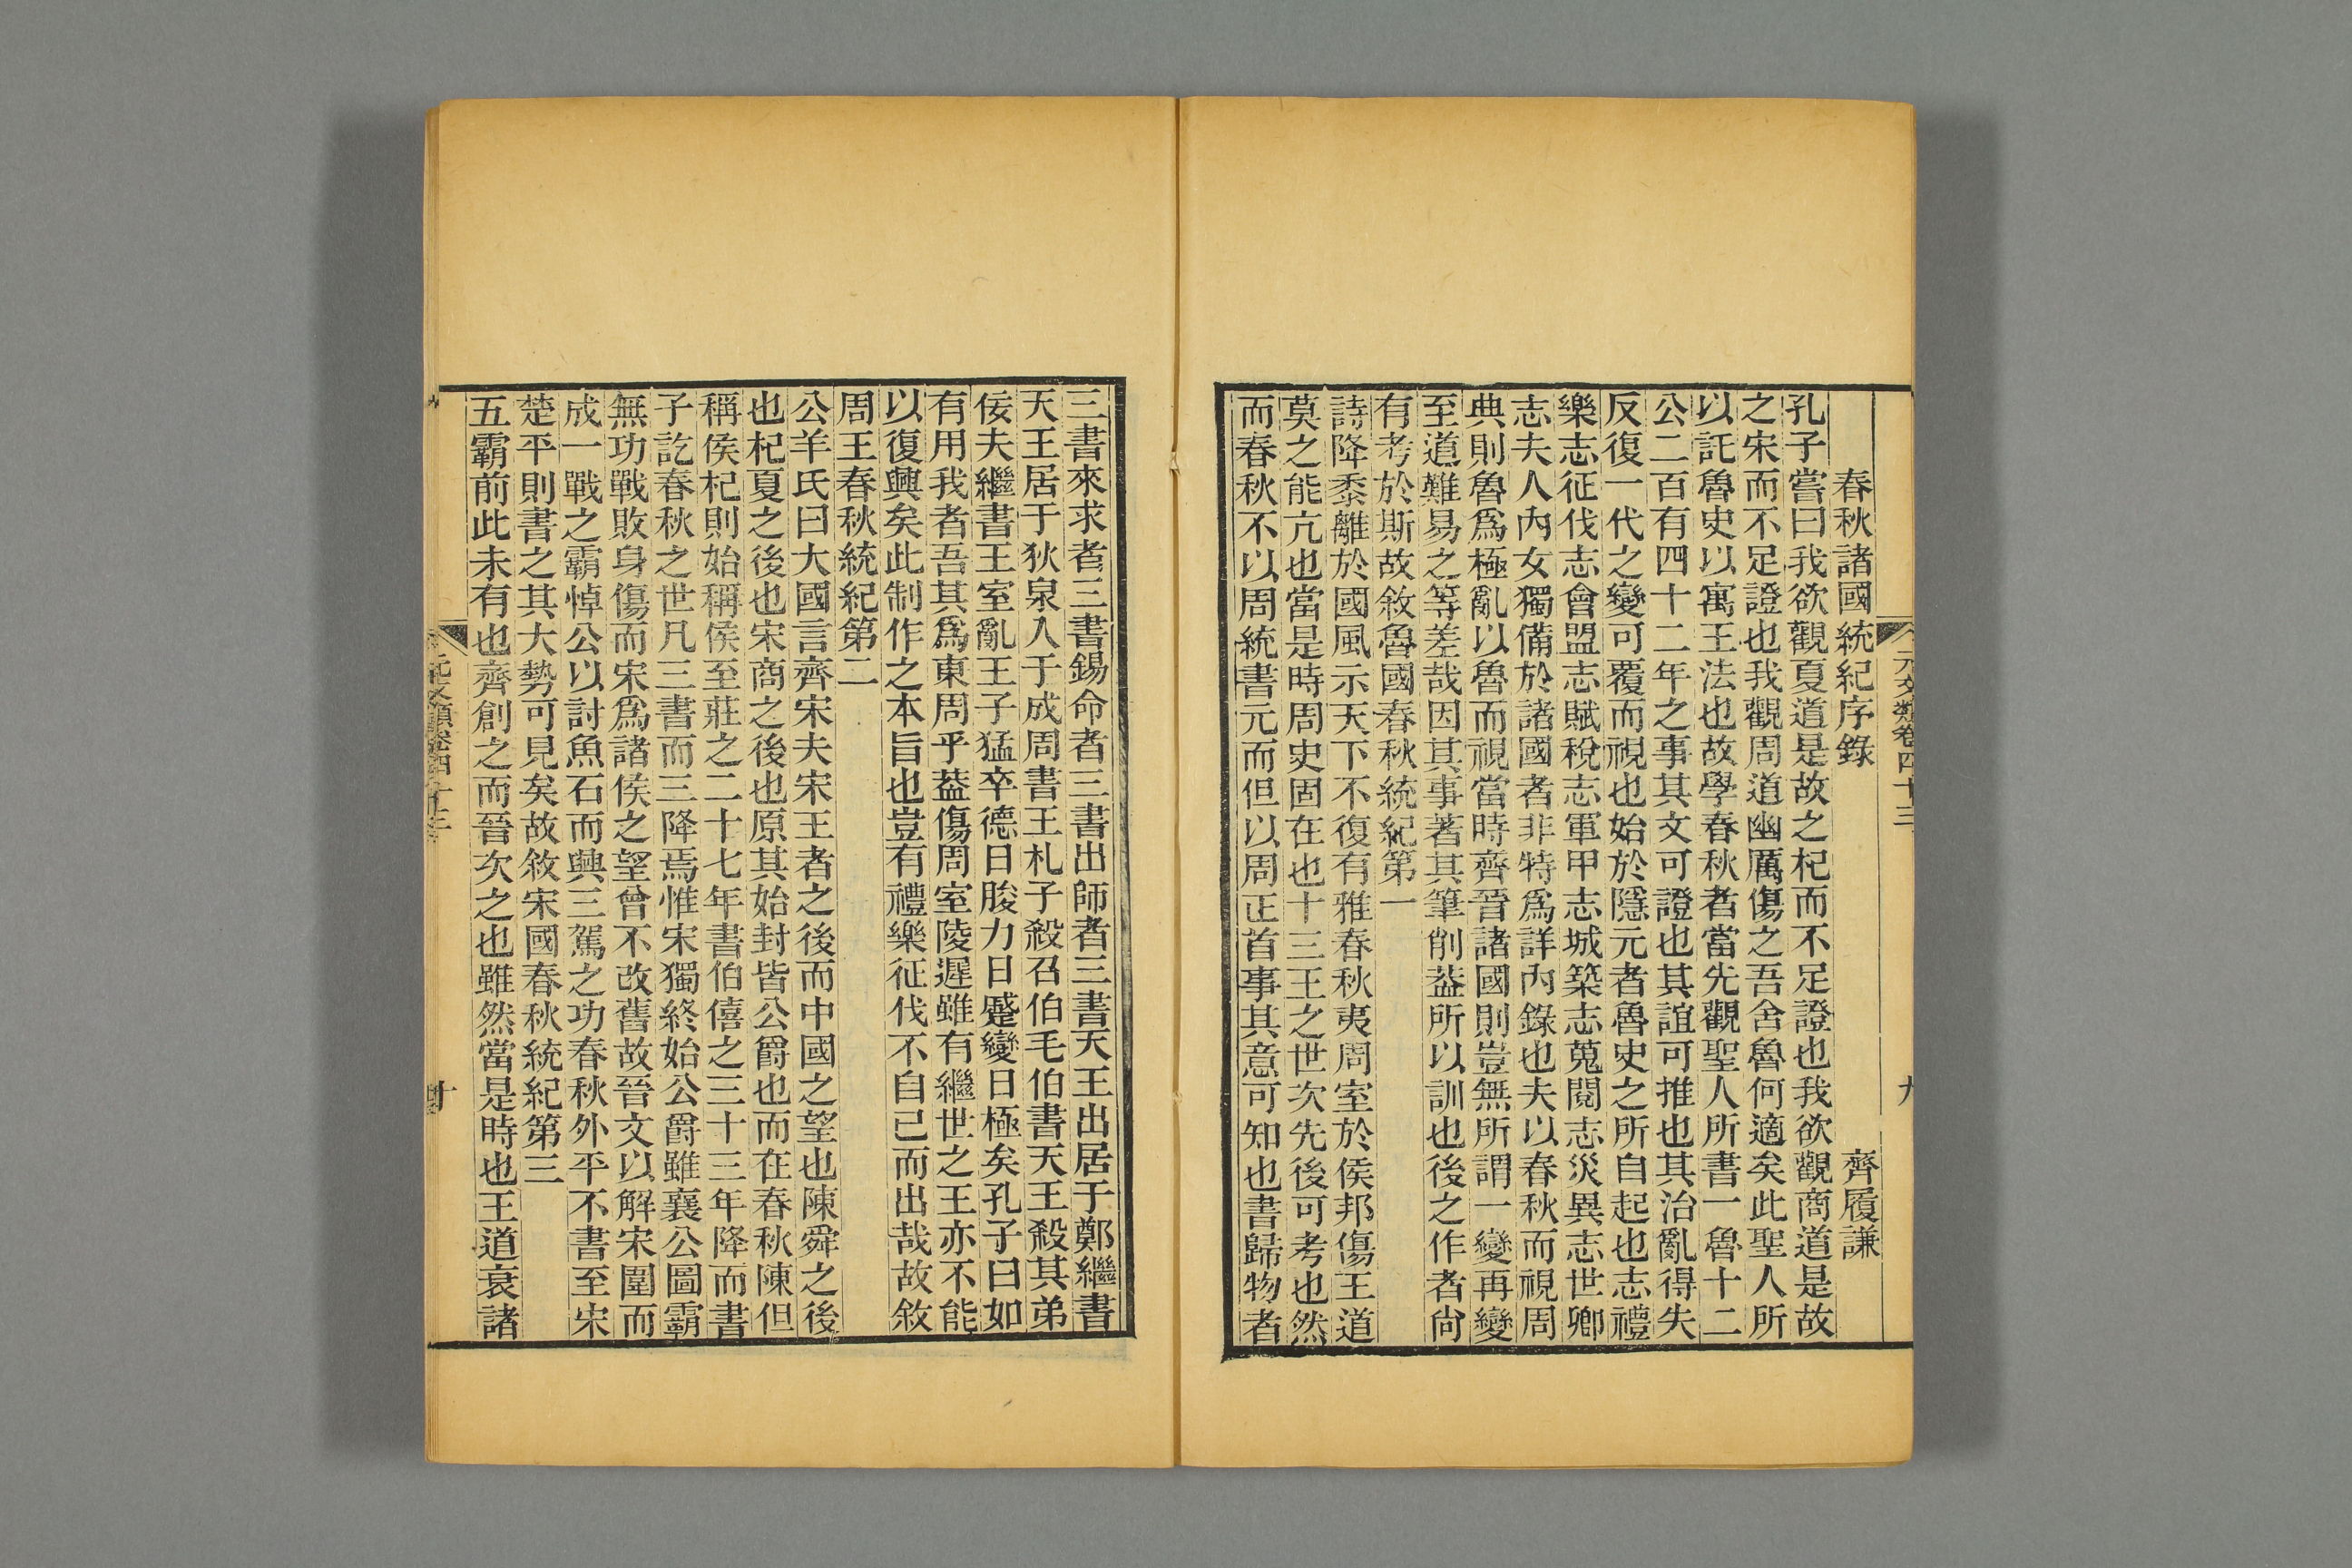 元文類卷四十三 九
春秋諸國統紀序錄 齊履謙
孔子嘗曰我欲觀夏道是故之杞而不足證也我欲觀商道是故
之宋而不足證也我觀周道幽厲傷之吾舍魯何適矣此聖人所
以託魯史以寓王法也故學春秋者當先觀聖人所書一魯十二
公二百有四十二年之事其文可證也其誼可推也其治亂得失
反復一代之變可覆而視也始於隱元者魯史之所自起也志禮
樂志征伐志會盟志賦稅志軍甲志城築志蒐閱志災異志世卿
志夫人內女獨備於諸國者非特爲詳內錄也夫以春秋而視周
典則魯爲極亂以魯而視當時齊晉諸國則豈無所謂一變再變
至道難易之等差哉因其事著其筆削葢所以訓也後之作者尙
有考於斯故敘魯國春秋統紀第一
詩降黍離於國風示天下不復有雅春秋夷周室於侯邦傷王道
莫之能亢也當是時周史固在也十三王之世次先後可考也然
而春秋不以周統書元而但以周正首事其意可知也書歸物者
三書來求者三書錫命者三書出師者三書天王出居于鄭繼書
天王居于狄泉入于成周書王札子殺召伯毛伯書天王殺其弟
佞夫繼書王室亂王子猛卒德日朘力日蹙變日極矣孔子曰如
有用我者吾其爲東周乎葢傷周室陵遲雖有繼世之王亦不能
以復興矣此制作之本旨也豈有禮樂征伐不自己而出哉故敘
周王春秋統紀第二
公羊氏曰大國言齊宋夫宋王者之後而中國之望也陳舜之後
也杞夏之後也宋商之後也原其始封皆公爵也而在春秋陳但
稱侯杞則始稱侯至莊之二十七年書伯僖之三十三年降而書
子訖春秋之世凡三書而三降焉惟宋獨終始公爵雖襄公圖霸
無功戰敗身傷而宋爲諸侯之望曾不改舊故晉文以解宋圍而
成一戰之霸悼公以討魚石而興三駕之功春秋外平不書至宋
楚平則書之其大勢可見矣故敘宋國春秋統紀第三
五霸前此未有也齊創之而晉次之也雖然當是時也王道衰諸
元文類卷四十三 十